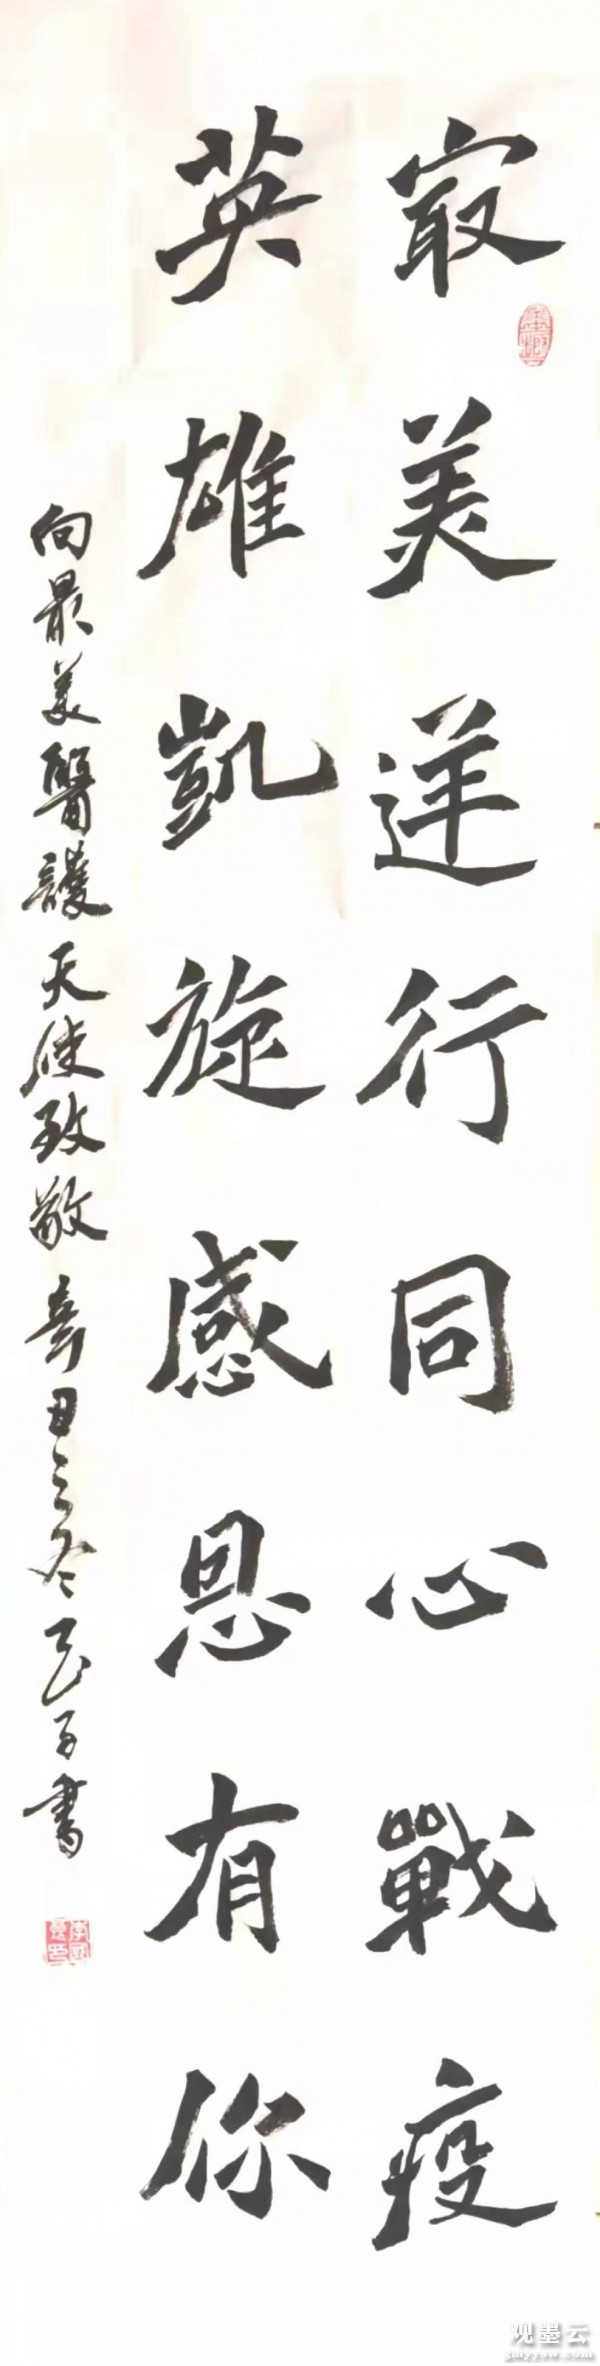 冣美逆行同心戰疫
英雄凱旋感恩有你
向最美醫護天使致敬 辛丑之冬 子書
观墨云
gmyjsw.com